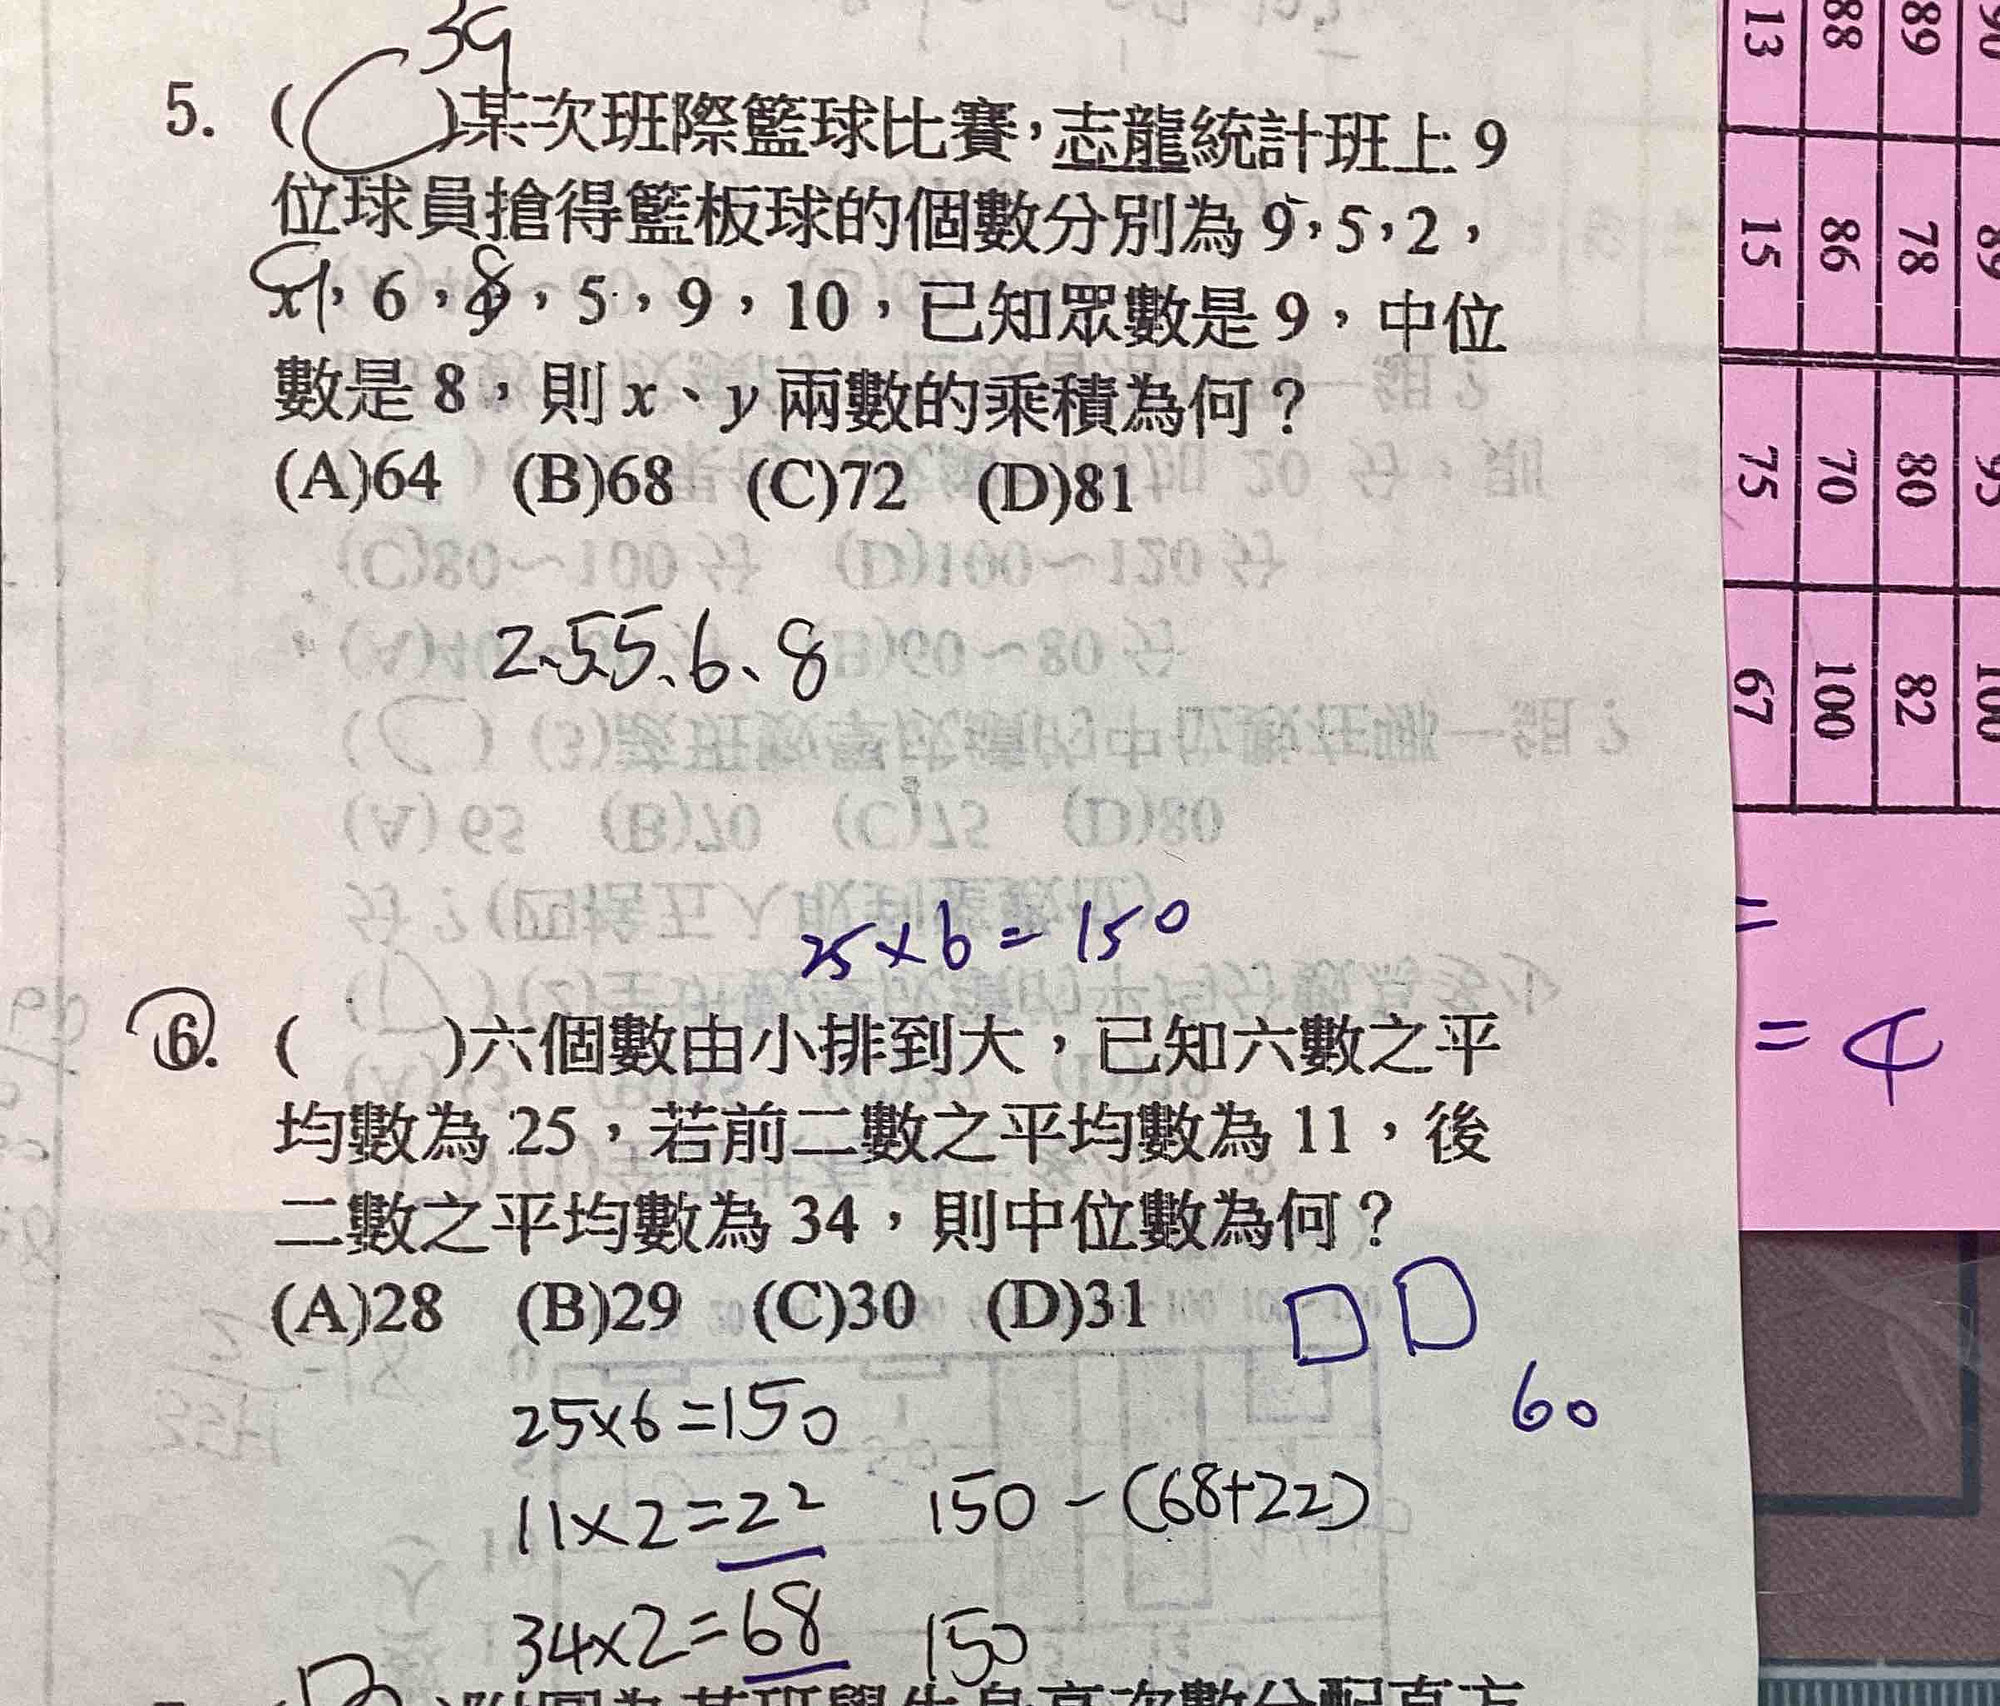 39
5. ( C )某次班際籃球比賽,志龍統計班上 9
位球員搶得籃板球的個數分別為 9,5,2,
x,6,y,5,9,10,已知眾數是 9,中位
9 8
數是 8,則 x、y 兩數的乘積為何?
(A)64 (B)68 (C)72 (D)81
2、5、5、6、8
25×6=150
6. ( )六個數由小排到大,已知六數之平
均數為 25,若前二數之平均數為 11,後
二數之平均數為 34,則中位數為何?
(A)28 (B)29 (C)30 (D)31
60
25×6=150
11×2=22 150-(68+22)
34×2=68 150
13 88 89 90
15 86 78 89
75 70 80 95
67 100 82 100
=
=4